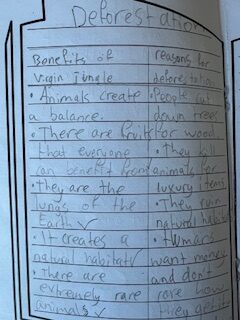 Deforestation
Benefits of
virgin jungle
• Animals create
a balance.
• There are fruits
that everyone
can benefit from
• they are the
lungs of the
Earth ✓
• It creates a
natural habitats
• There are
extremely rare
animals ✓
reasons for
deforestation
• People cut
down trees
for wood
• they kill
animals for
luxury items
• They ruin
natural habitat
• Humans
want money
and don't
how
they get it